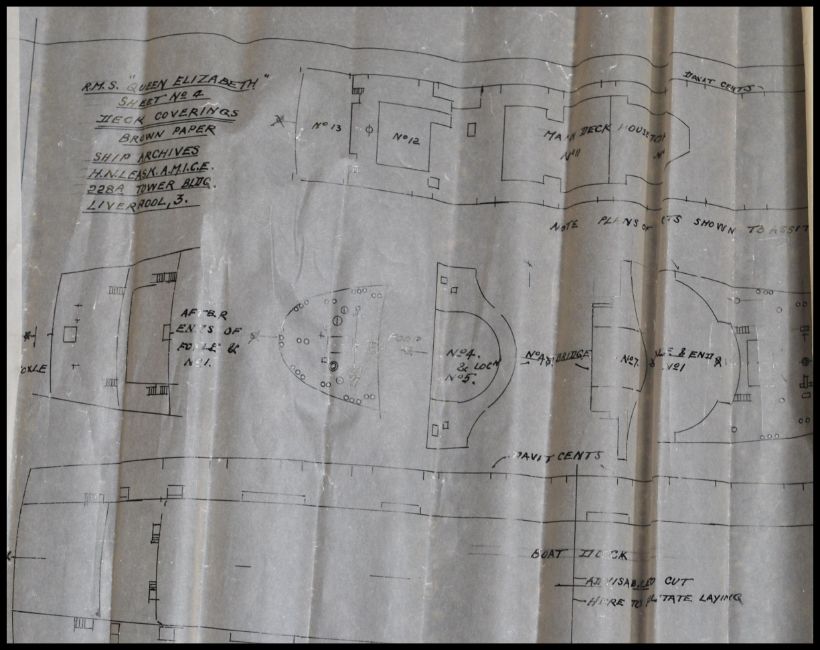 R.M.S. "QUEEN ELIZABETH"
SHEET No 4
DECK COVERINGS
BROWN PAPER
SHIP ARCHIVES
H.N. LEASK. A.M.I.C.E.
228A TOWER BLDG.
LIVERPOOL, 3.
DAVIT CENTS
No 13
No 12
MAIN DECK HOUSETOP
No 11
No
NOTE PLANS OF SHOWN TO ASSIST
AFTER
ENDS OF
FOC'LE &
No 1.
No 4.
& LOCN
No 5.
BRIDGE
No 7.
& END OF
No 1
DAVIT CENTS
BOAT DECK
ADVISABLED CUT
HERE TO LAYING